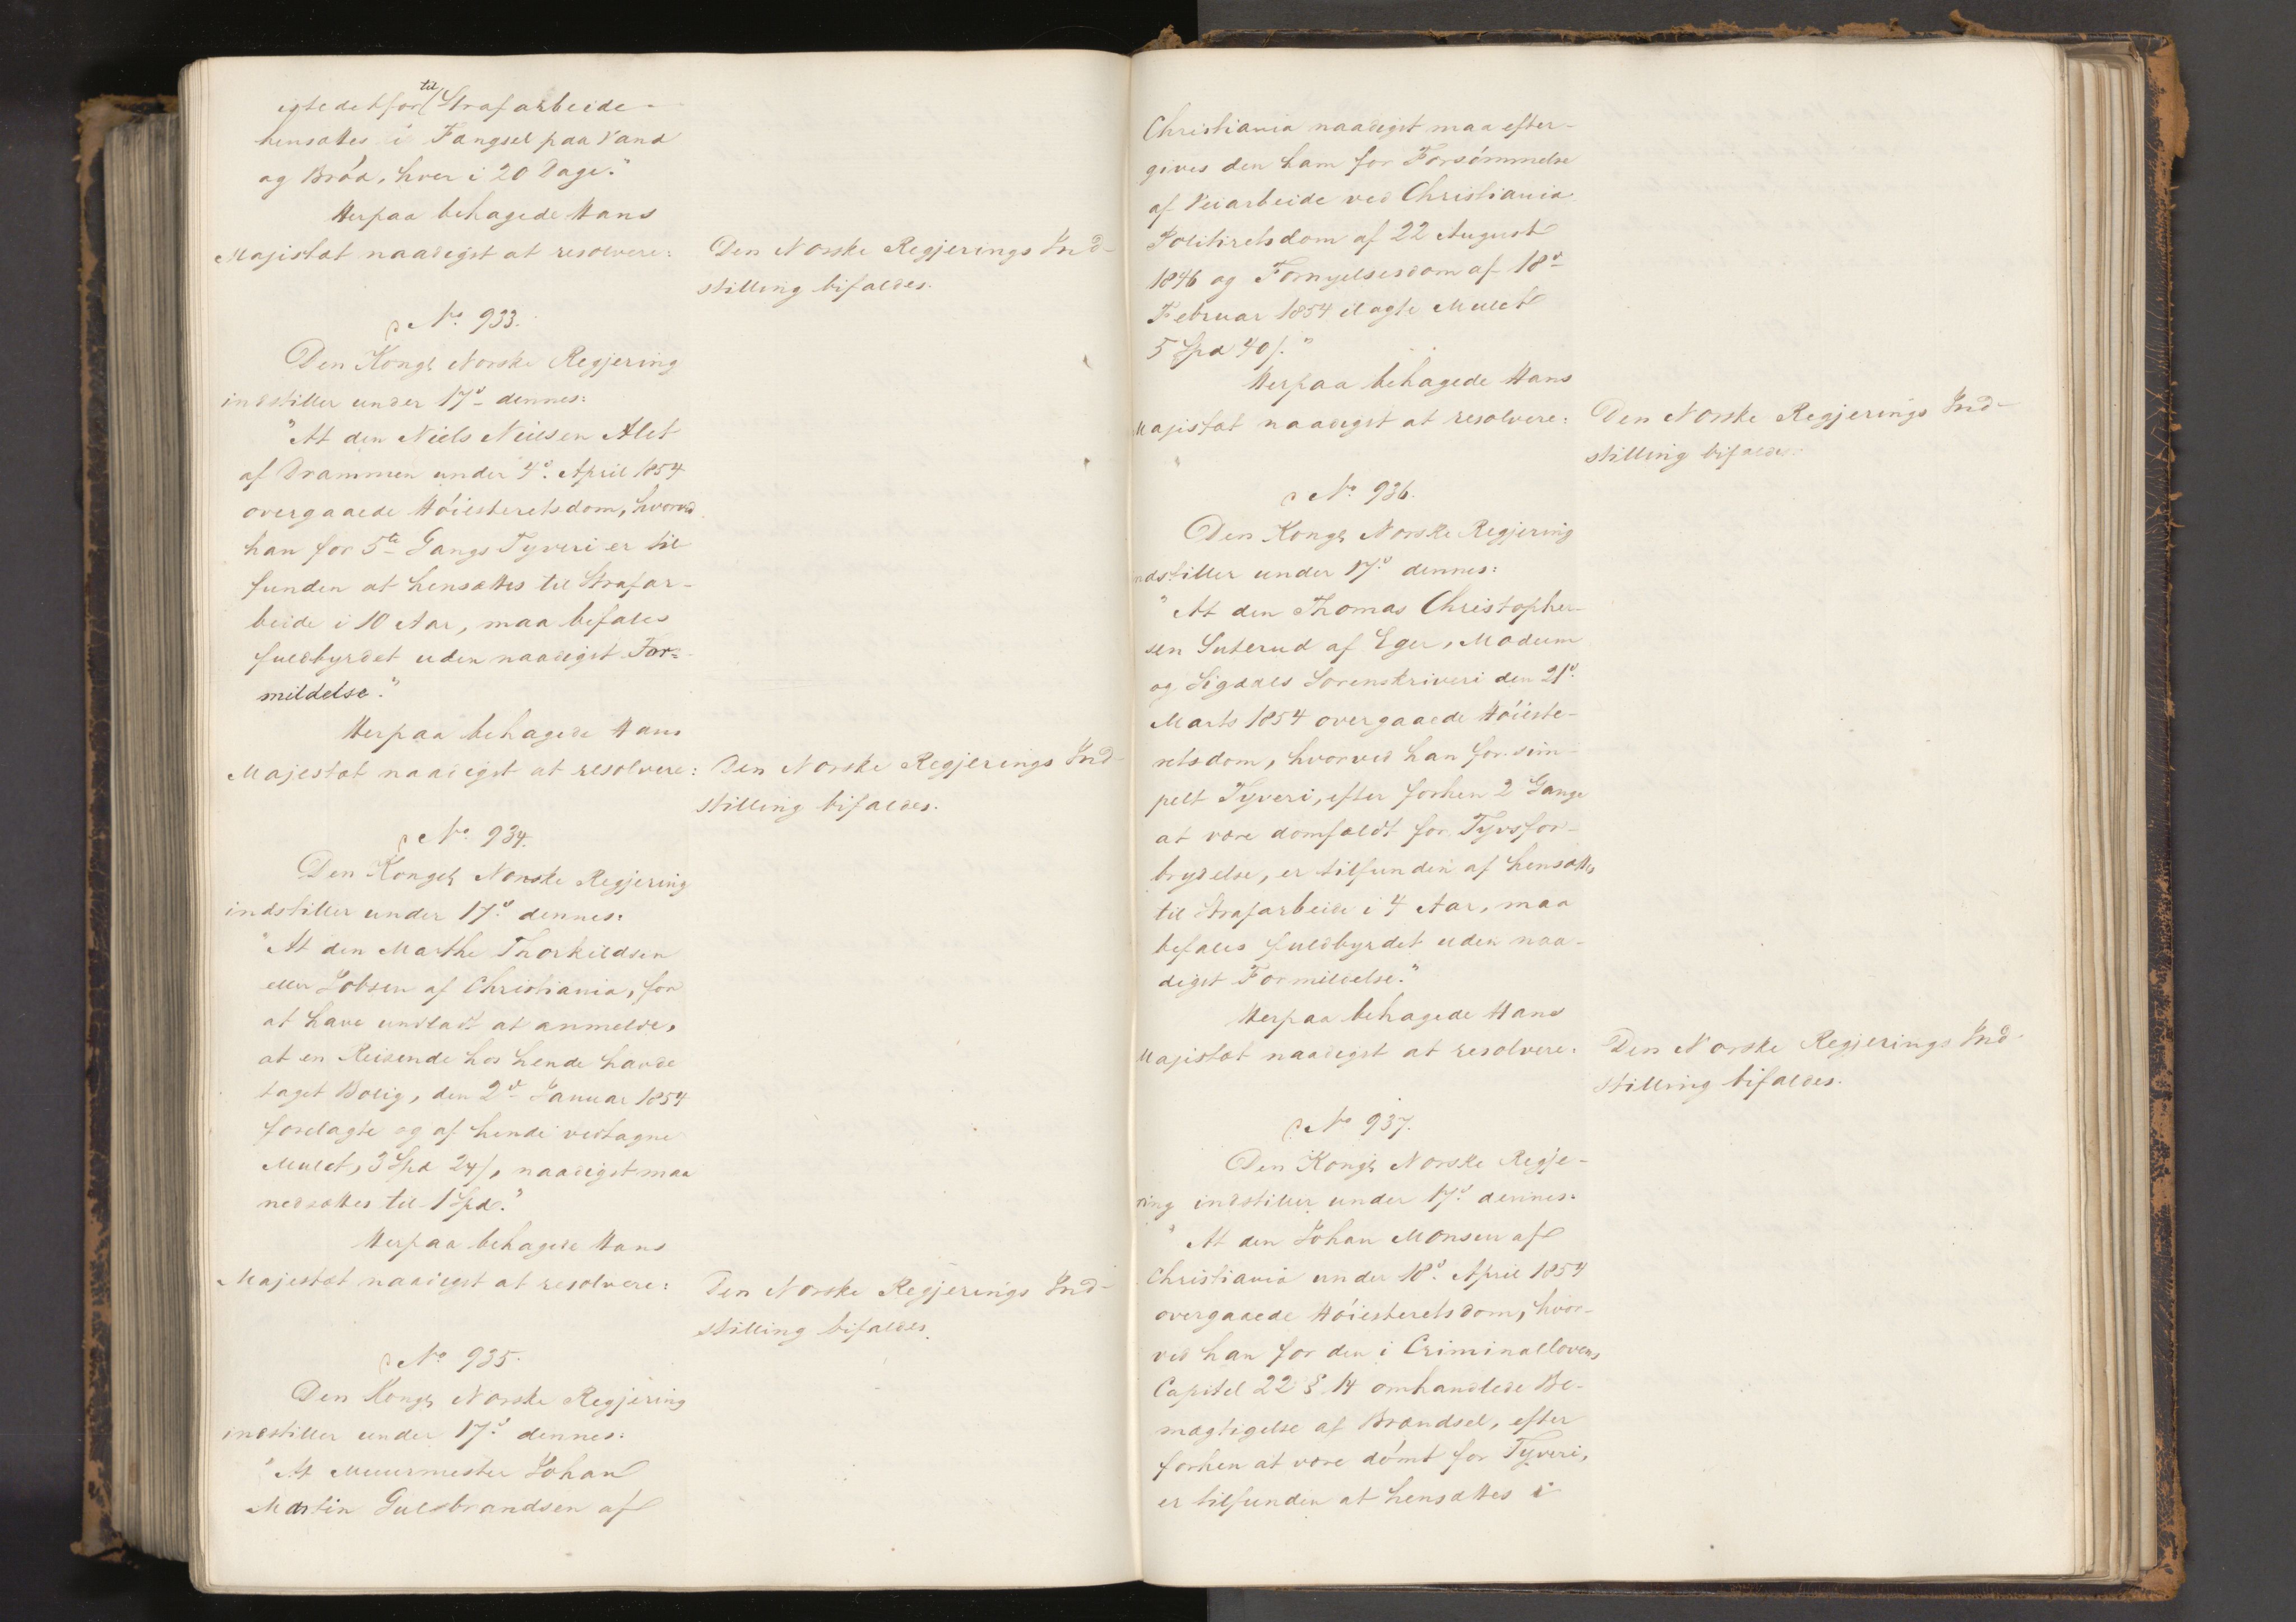 istedetfor til Strafarbeide
hensættes i Fængsel paa Vand
og Brød, hver i 20 Dage."
Herpaa behagede Hans
Majestæt naadigst at resolvere:
Den Norske Regjerings Ind-
stilling bifaldes.
No. 933.
Den Kongl. Norske Regjering
indstiller under 17d. dennes:
"At den Niels Nielsen Alet
af Drammen under 4d. April 1854
overgaaede Høiesteretsdom, hvorved
han for 5te Gangs Tyveri er til-
funden at hensættes til Strafar-
beide i 10 Aar, maa befales
fuldbyrdet uden naadigst For-
mildelse."
Herpaa behagede Hans
Majestæt naadigst at resolvere:
Den Norske Regjerings Ind-
stilling bifaldes.
No. 934.
Den Kongel. Norske Regjering
indstiller under 17d. dennes:
"At den Marthe Thorkildsen
eller Jobsen af Christiania, for
at have undladt at anmelde,
at en Reisende hos hende havde
taget Bolig, den 2d. Januar 1854
forelagte og af hende vedtagne
Mulct, 3 Spd 24 s, naadigst maa
nedsættes til 1 Spd."
Herpaa behagede Hans
Majestæt naadigst at resolvere:
Den Norske Regjerings Ind-
stilling bifaldes.
No. 935.
Den Kongl. Norske Regjering
indstiller under 17d. dennes:
"At Muurmester Johan
Martin Gulbrandsen af
Christiania naadigst maa efter-
gives den ham for Forsømmelse
af Veiarbeide ved Christiania
Politiretsdom af 22 August
1846 og Fornyelsesdom af 18d.
Februar 1854 ilagte Mulct
5 Spd 40 s."
Herpaa behagede Hans
Majestæt naadigst at resolvere:
Den Norske Regjerings Ind-
stilling bifaldes.
No. 936.
Den Kongl. Norske Regjering
indstiller under 17d. dennes:
"At den Thomas Christopher-
sen Suterud af Eger, Modum
og Sigdals Sorenskriveri den 21d.
Marts 1854 overgaaede Høieste-
retsdom, hvorved han for sim-
pelt Tyveri, efter forhen 2 Gange
at være domfældt for Tyvsfor-
brydelse, er tilfunden at hensættes
til Strafarbeide i 4 Aar, maa
befales fuldbyrdet uden naa-
digst Formildelse."
Herpaa behagede Hans
Majestæt naadigst at resolvere:
Den Norske Regjerings Ind-
stilling bifaldes.
No. 937.
Den Kongl. Norske Regje-
ring indstiller under 17d. dennes:
"At den Johan Monsen af
Christiania under 18d. April 1854
overgaaede Høiesteretsdom, hvor-
ved han for den i Criminallovens
Capitel 22 § 14 omhandlede Be-
mægtigelse af Brændsel, efter
forhen at være dømt for Tyveri,
er tilfunden at hensættes i